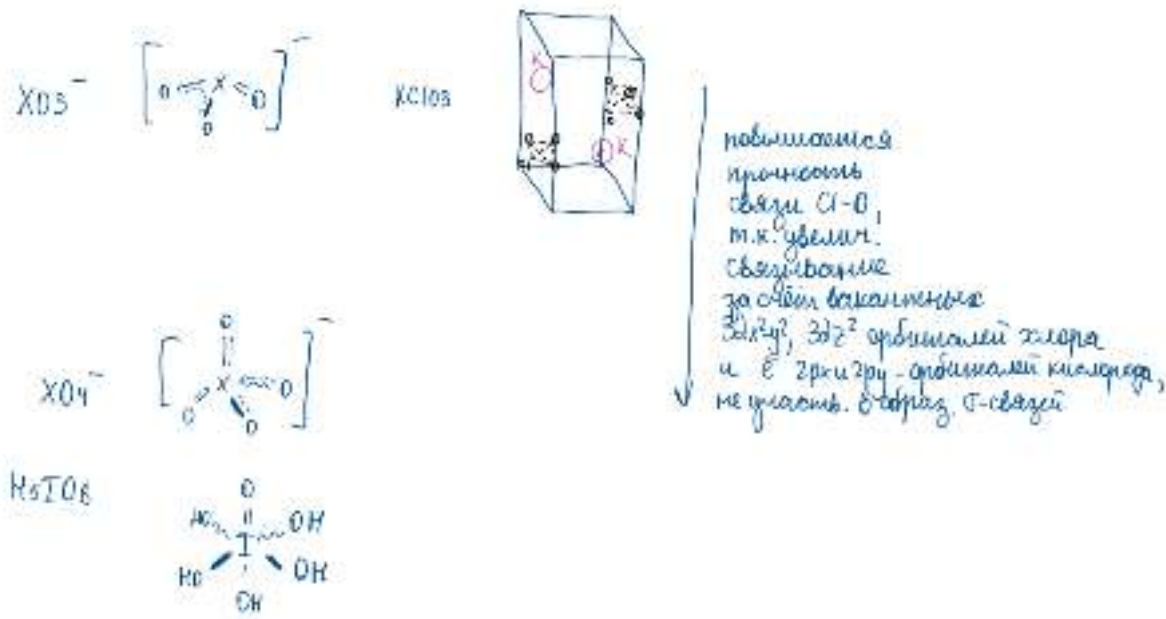 XO3⁻
[O X O O]⁻
KClO3
K
K
повышается
прочность
связи Cl-O,
т.к. увелич.
связывание
за счёт вакантных
3dx²y², 3dz² орбиталей хлора
и ē 2px и 2py - орбиталей кислорода,
не участв. в образ. σ-связей
XO4⁻
[O X O O O]⁻
H5IO6
O
HO I OH
HO OH
OH